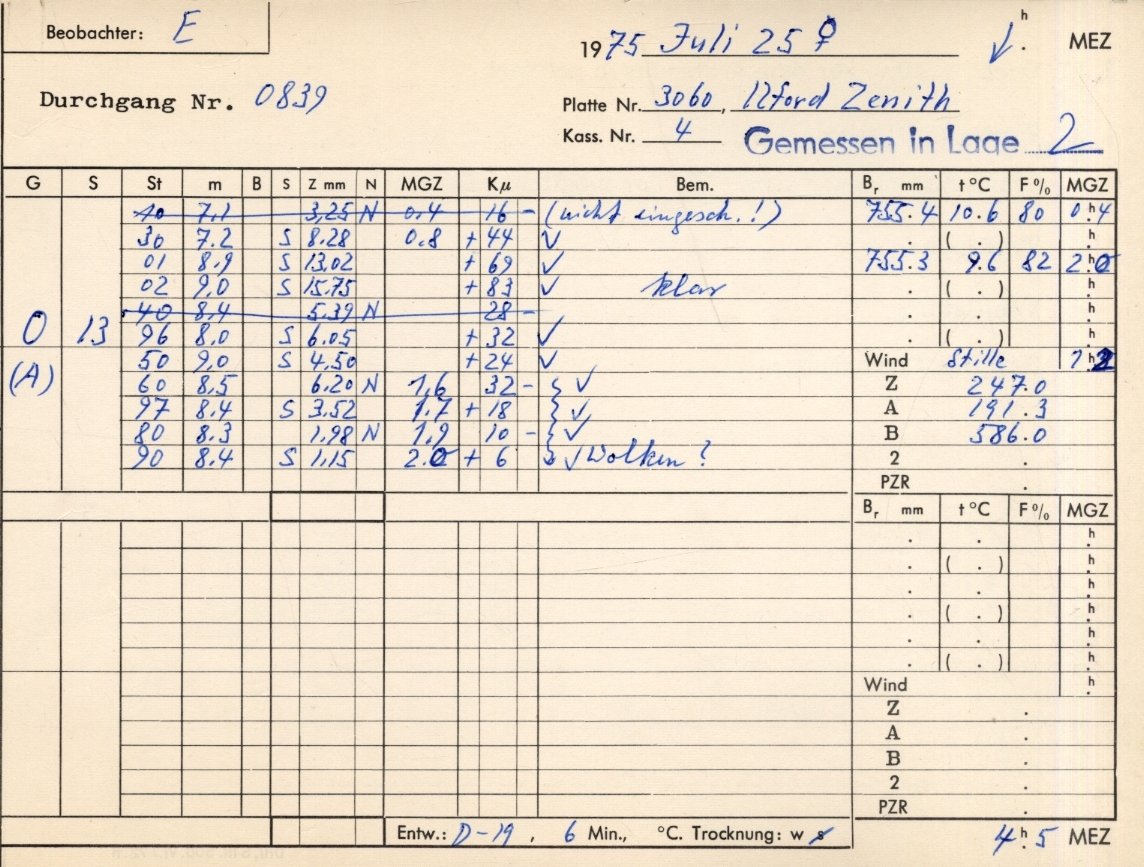 Beobachter: E
1975 Juli 25 ♀ √ h. MEZ
Durchgang Nr. 0839
Platte Nr. 3060, Ilford Zenith
Kass. Nr. 4 Gemessen in Lage 2
G S St m B S Z mm N MGZ Kμ Bem. Br mm t °C F % MGZ
10 7.1 3,25 N 0.4 16 - (nicht eingesch.!) 755.4 10.6 80 0h.4
30 7.2 S 8.28 0.8 + 44 √ . ( . ) h.
01 8.9 S 13,02 + 69 √ 755.3 9.6 82 2.h0
02 9,0 S 15,75 + 83 √ klar . ( . ) h.
40 8.4 5.39 N 28 - . h.
0 13 96 8,0 S 6.05 + 32 √ . ( . ) h.
50 9,0 S 4,50 + 24 √ Wind Stille 1h.2
(A) 60 8.5 6.20 N 1,6 32 - } √ Z 247.0
97 8.4 S 3,52 1.7 + 18 } √ A 191.3
80 8.3 1,98 N 1.9 10 - } √ B 586.0
90 8.4 S 1,15 2.0 + 6 } √ Wolken ? 2 .
PZR .
Br mm t °C F % MGZ
. h.
. ( . ) h.
. h.
. ( . ) h.
. h.
. ( . ) h.
Wind h.
Z .
A .
B .
2 .
PZR .
Entw.: D-19, 6 Min., °C. Trocknung: w s 4h.5 MEZ